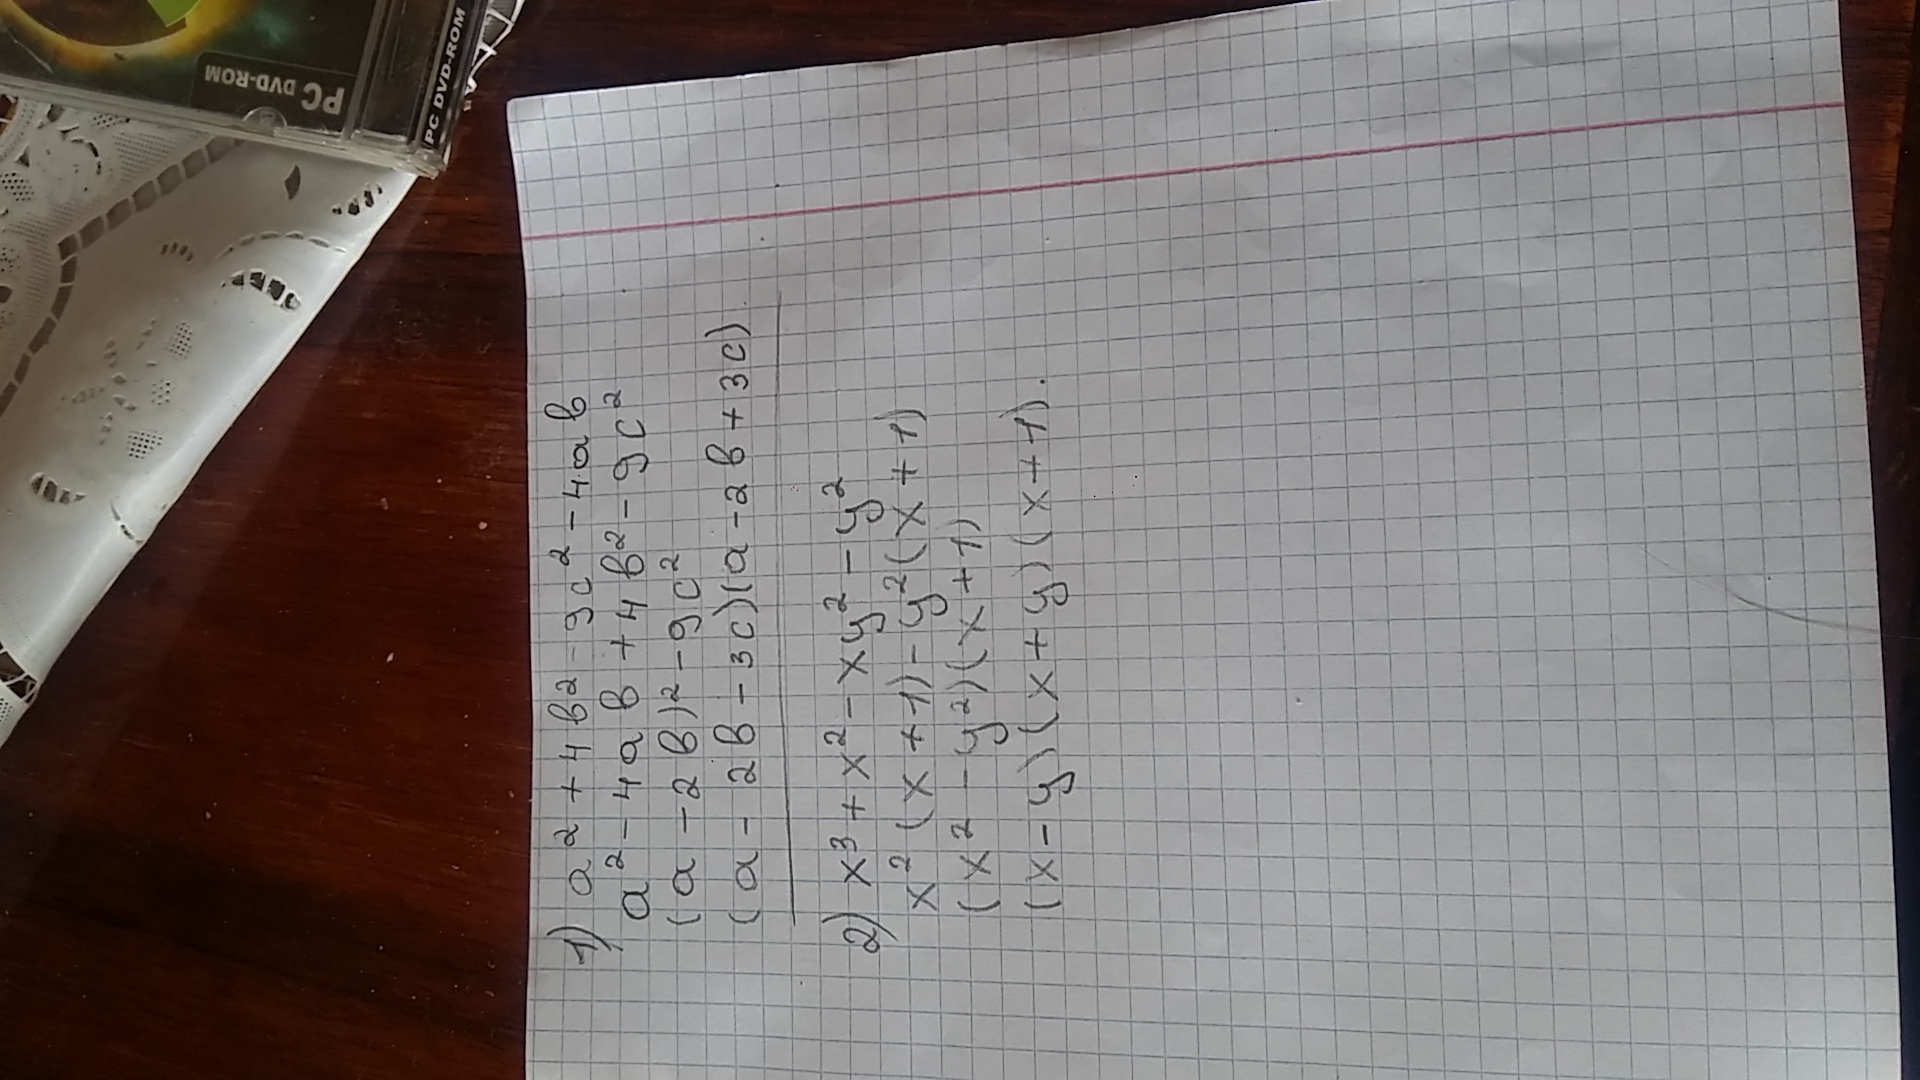 PC DVD-ROM
PC DVD-ROM
1) a² + 4в² - 9c² - 4aв
a² - 4aв + 4в² - 9c²
(a - 2в)² - 9c²
(a - 2в - 3c)(a - 2в + 3c)
2) x³ + x² - xy² - y²
x²(x + 1) - y²(x + 1)
(x² - y²)(x + 1)
(x - y)(x + y)(x + 1).